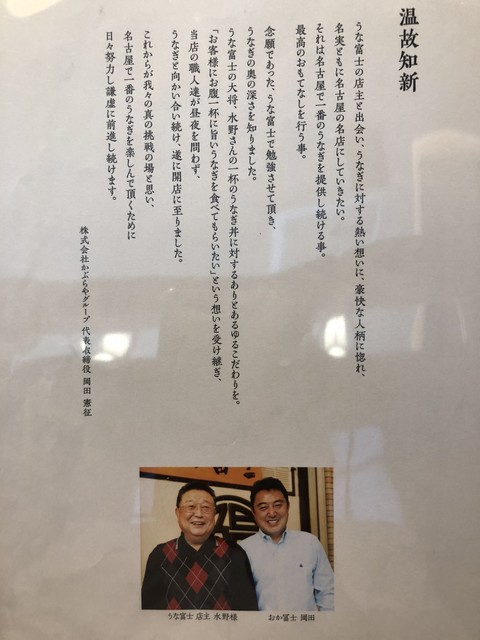 温故知新
うな富士の店主と出会い、うなぎに対する熱い想いに、豪快な人柄に惚れ、
名実ともに名古屋の名店にしていきたい。
それは名古屋で一番のうなぎを提供し続ける事。
最高のおもてなしを行う事。
念願であった、うな富士で勉強させて頂き、
うなぎの奥の深さを知りました。
うな富士の大将、水野さんの一杯のうなぎ丼に対するありとあらゆるこだわりを。
「お客様にお腹一杯に旨いうなぎを食べてもらいたい」という想いを受け継ぎ、
当店の職人達が昼夜を問わず、
うなぎと向かい合い続け、遂に開店に至りました。
これからが我々の真の挑戦の場と思い、
名古屋で一番のうなぎを楽しんで頂くために
日々努力し謙虚に前進し続けます。
株式会社かぶらやグループ 代表取締役 岡田 憲征
うな富士 店主 水野様
おか冨士 岡田